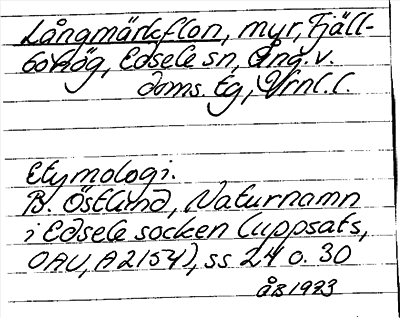 Långmärkflon, myr, Fjäll-
bohög, Edsele sn, Ång. v.
doms. tg, Vrnl. l.
Etymologi.
B. Östlund, Naturnamn
i Edsele socken (uppsats,
OAU, A2154), ss 24 o. 30
ÅB 1923